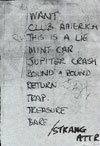 WANT
CLUB AMERICA
THIS IS A LIE
MINT CAR
JUPITER CRASH
ROUND + ROUND
RETURN
TRAP
TREASURE
BARE
/STRANG
ATTR